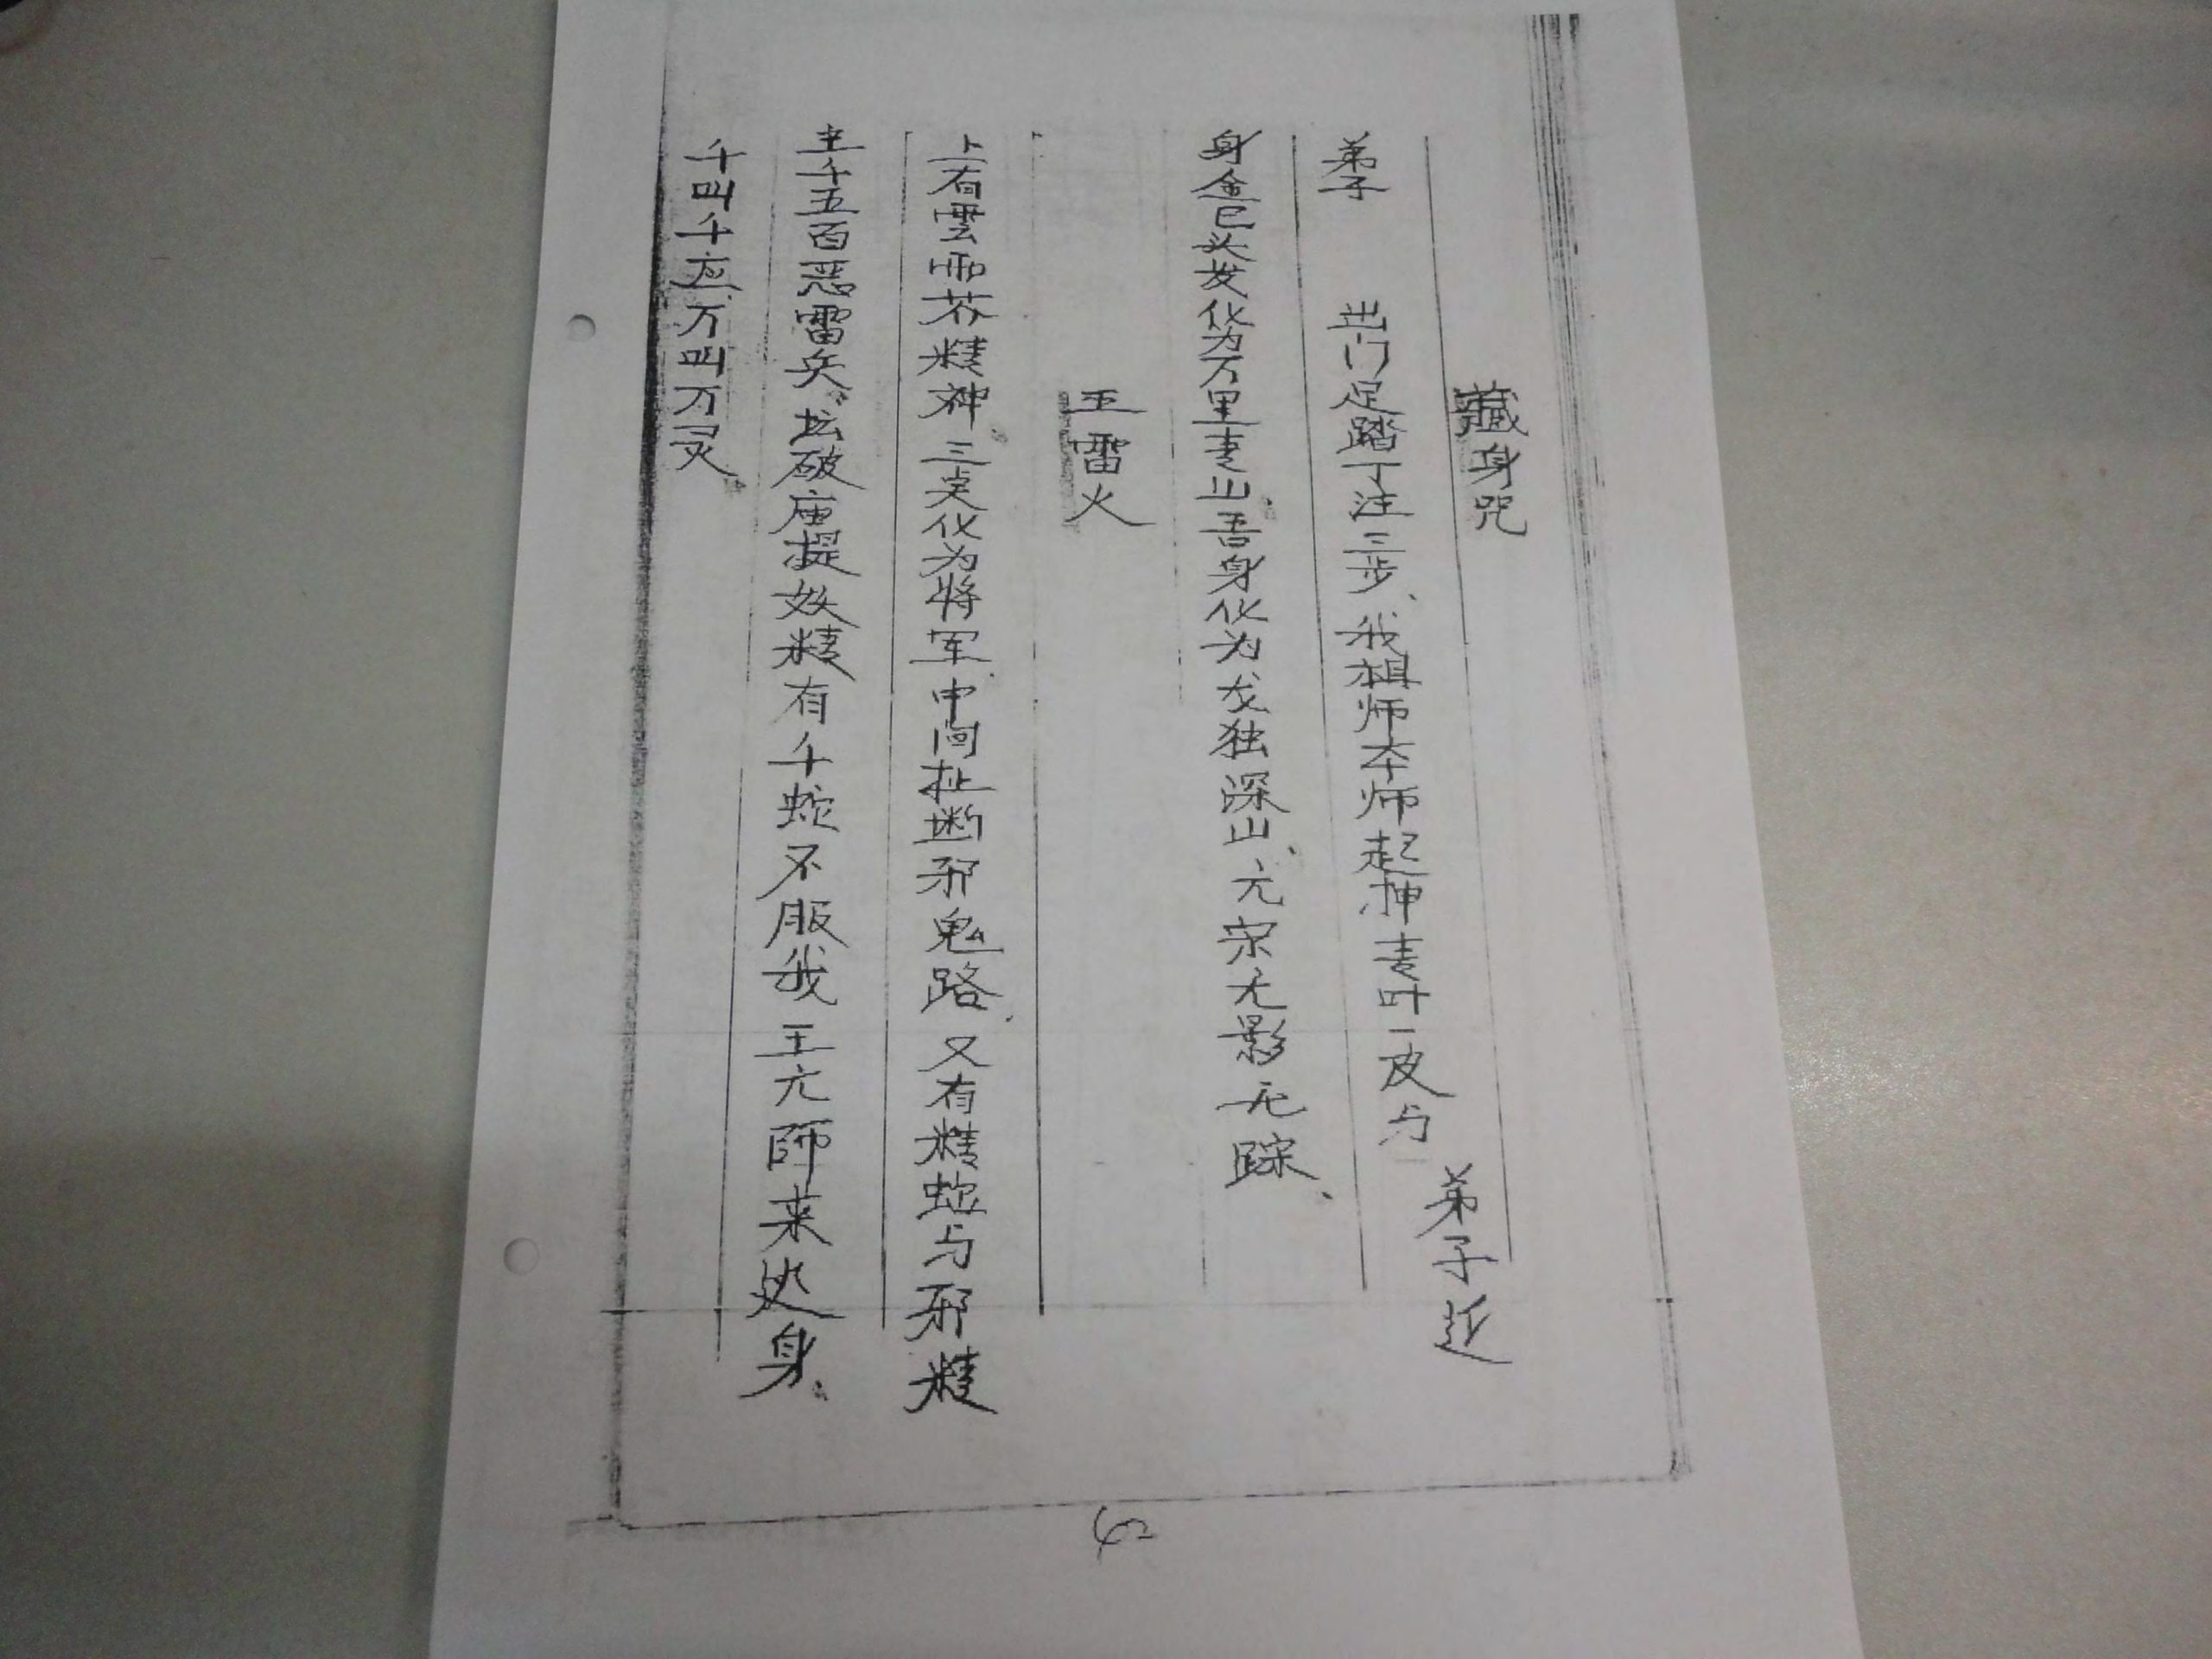 藏身咒
弟子 出门足踏丁注三步、我祖师本师起押麦叶一皮与 弟子近
身金巳头发化为万里麦山、吾身化为龙独深山、亢宗无影无踪、
王雷火
上有雲雨芥精神、三矣化为将军、中间扯断邪鬼路、又有精蛇与邪精
主千五百恶雷兵、坛破庙提妖精有千蛇不服我王亢師来处身、
千叫千应、万叫万灵、
42